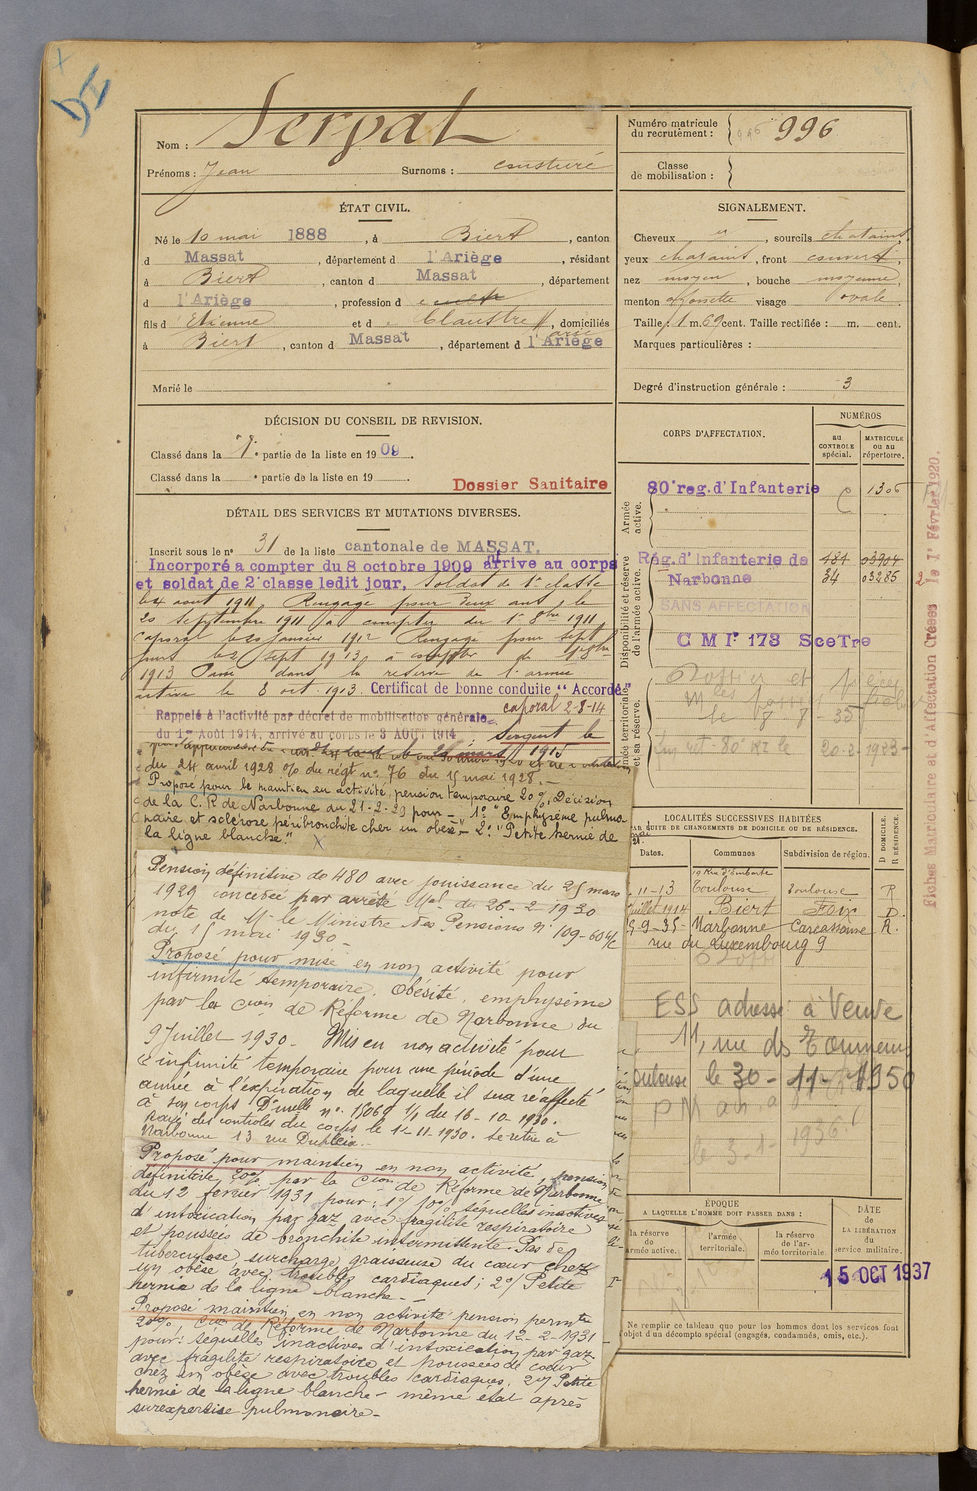 DI
Nom : Servat
Prénoms : Jean Surnoms :
Numéro matricule du recrutement : 996
Classe de mobilisation :
ÉTAT CIVIL.
Né le 10 mai 1888, à Biert, canton
d Massat, département d l'Ariège, résidant
à Biert, canton d Massat, département
d l'Ariège, profession d
fils d Etienne et d Claustre, domiciliés
à Biert, canton d Massat, département d l'Ariège
Marié le
SIGNALEMENT.
Cheveux , sourcils chatains
yeux chatains, front couvert,
nez moyen, bouche moyenne,
menton fossette visage ovale
Taille : 1 m. 69 cent. Taille rectifiée : m. cent.
Marques particulières :
Degré d'instruction générale : 3
DÉCISION DU CONSEIL DE REVISION.
Classé dans la 1e partie de la liste en 1909.
Classé dans la e partie de la liste en 19 .
Dossier Sanitaire
DÉTAIL DES SERVICES ET MUTATIONS DIVERSES.
Inscrit sous le n° 31 de la liste cantonale de MASSAT.
Incorporé a compter du 8 octobre 1909 arrivé au corps
et soldat de 2e classe ledit jour, Soldat de 1e classe
le 4 aout 1911 Rengagé pour deux ans le
20 Septembre 1911 à compter du 1er 8bre 1911
Caporal le 20 janvier 1912 Rengagé pour sept
jours le 21 Sept 1913 à compter du 1er 8bre
1913 Passé dans la réserve de l'armée
active le 8 oct. 1913. Certificat de bonne conduite "Accordé"
caporal 2-8-14
Rappelé à l'activité par décret de mobilisation générale
du 1er Août 1914, arrivé au corps le 3 AOUT 1914. Sergent le
du 24 avril 1928 % du régt n° 76 du 15 mai 1928.-
Proposé pour le maintien en activité, pension temporaire 20%, Décision
de la C.R de Narbonne du 21-2-29 pour - 1° "Emphysème pulmo-
naire et sclérose péribronchite chez un obèse - 2° "Petite hernie de
la ligne blanche."
Pension définitive de 480 avec jouissance du 25 mars
1929 concédée par arrêté Mel du 26-2-1930
note de Mr le Ministre des Pensions N° 109-604/c
du 15 mai 1930-
Proposé pour mise en non activité pour
infirmité temporaire. Obésité, emphysème
par la Cion de Réforme de Narbonne du
9 Juillet 1930- Mis en non activité pour
infirmité temporaire pour une période d'une
année à l'expiration de laquelle il sera réaffecté
à son corps Dielle n° 15060 1/1 du 16-10-1930.
Rayé des controles du corps le 1-11-1930. Se retire à
Narbonne 13 rue Dupleix.-
Proposé pour maintien en non activité, pension
définitive 20% par la Cion de Réforme de Narbonne
du 12 fevrier 1931 pour : 1°/ 10% séquelles inactives
d'intoxication par gaz avec fragilité respiratoire
et poussées de bronchite intermittente. Pas de
tuberculose surcharge graisseuse du coeur chez
un obèse avec troubles cardiaques ; 2°/ Petite
hernie de la ligne blanche.-
Proposé maintien en non activité pension permte
20%, Cion de Réforme de Narbonne du 12-2-1931
pour : séquelles inactives d'intoxication par gaz
avec fragilité respiratoire et poussées de coeur
chez un obèse avec troubles cardiaques, 2°/ Petite
hernie de la ligne blanche - même état après
surexpertise pulmonaire-
CORPS D'AFFECTATION.
NUMÉROS
AU CONTROLE spécial.
MATRICULE ou au répertoire.
Armée active.
80e reg. d'Infanterie C 1306
Disponibilité et réserve de l'armée active.
Rég. d'Infanterie de 481 03904
Narbonne 34 03285
SANS AFFECTATION
C M Ir 173 SceTre
Armée territoriale et sa réserve.
le 7-8-35
80e RI le 20-2-1923-
Fiches Matriculaire et d'Affectation Créées le 1er Février 1920.
LOCALITÉS SUCCESSIVES HABITÉES
PAR SUITE DE CHANGEMENTS DE DOMICILE OU DE RÉSIDENCE.
Dates. Communes Subdivision de région. D DOMICILE. R RÉSIDENCE.
-11-13 Toulouse Toulouse R
Juillet 1914 Biert Foix D.
9-9-35- Narbonne Carcassonne R.
rue du Luxembourg 9
ESS adressé à Veuve
11, rue des Tourneurs
Toulouse le 30-11-1950
le 3-1-1936
ÉPOQUE
A LAQUELLE L'HOMME DOIT PASSER DANS :
la réserve de l'armée active.
l'armée territoriale.
la réserve de l'armée territoriale.
DATE de LA LIBÉRATION du service militaire.
15 OCT 1937
Ne remplir ce tableau que pour les hommes dont les services font
l'objet d'un décompte spécial (engagés, condamnés, omis, etc.).